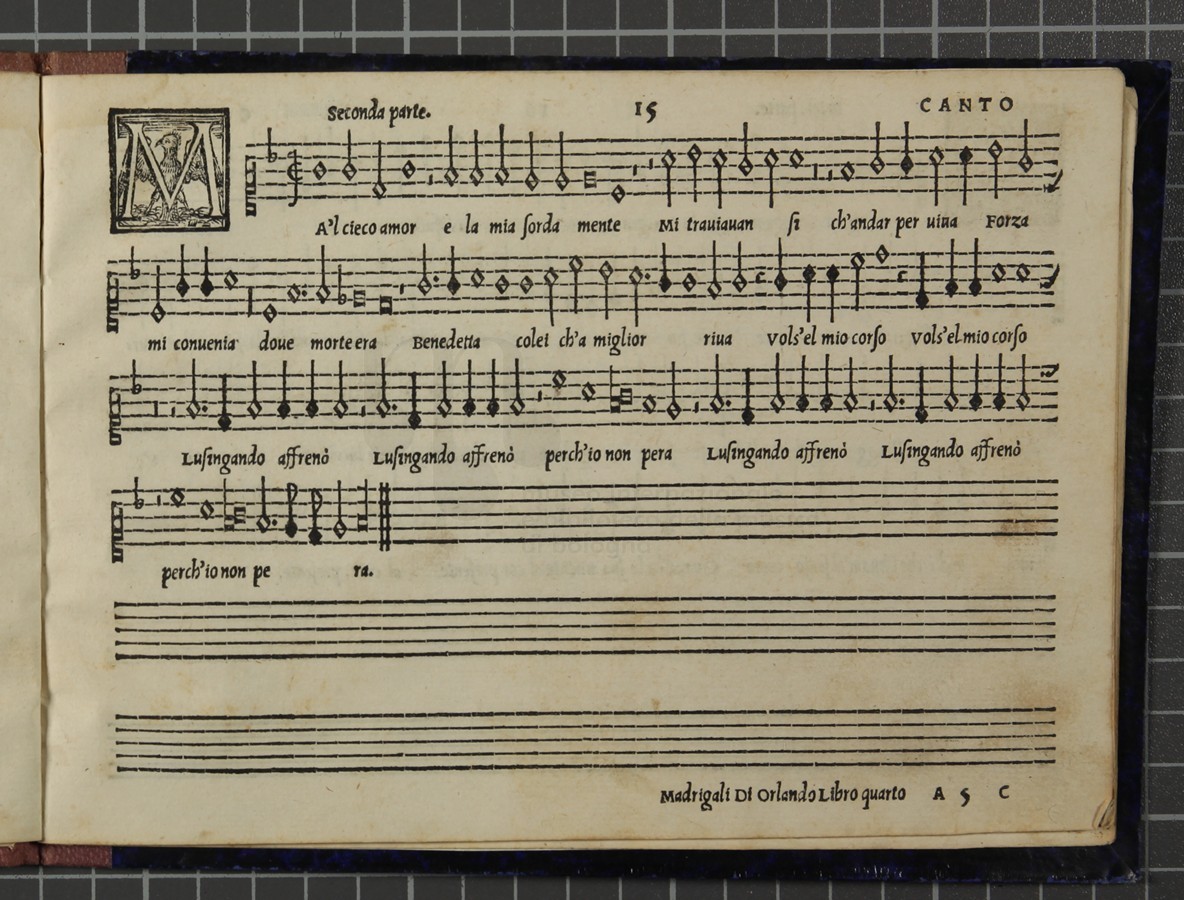 Seconda parte. 15 CANTO
M
A'l cieco amor e la mia sorda mente Mi trauiauan si ch'andar per uiua Forza
mi conuenia doue morte era Benedetta colei ch'a miglior riua vols'el mio corso vols'el mio corso
Lusingando affrenò Lusingando affrenò perch'io non pera Lusingando affrenò Lusingando affrenò
perch'io non pe ra.
Madrigali Di Orlando Libro quarto A 5 C